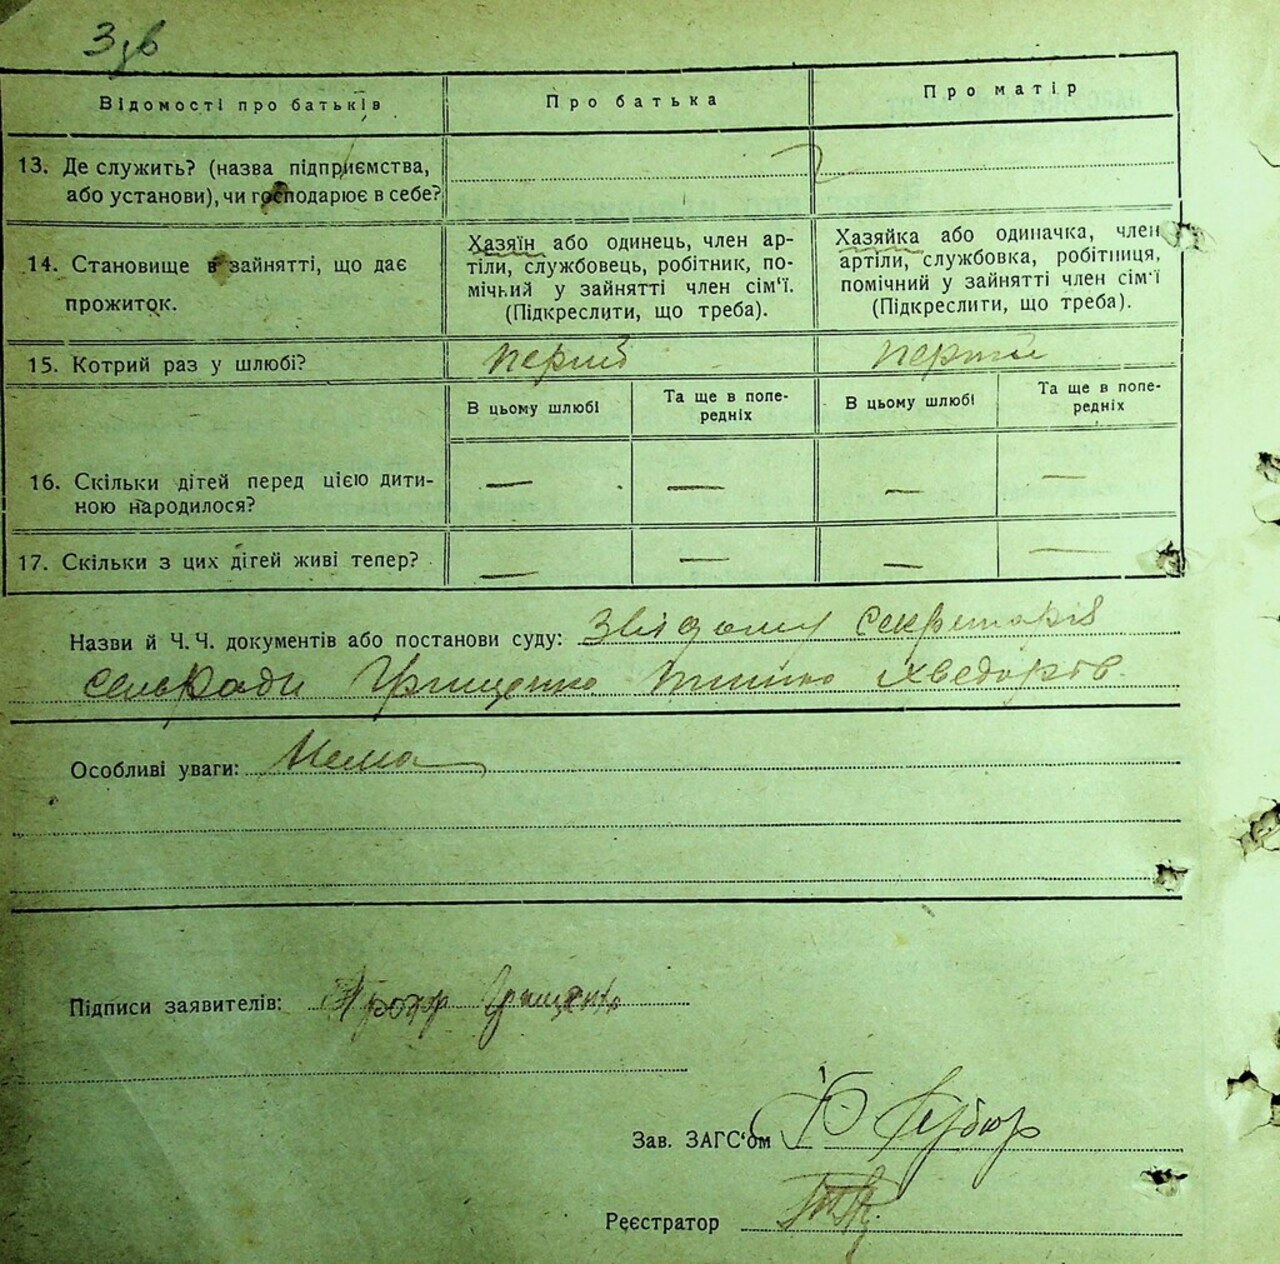 3зв
Відомості про батьків
Про батька
Про матір
13. Де служить? (назва підприємства,
або установи), чи господарює в себе?
14. Становище в зайнятті, що дає
прожиток.
Хазяїн або одинець, член ар-
тіли, службовець, робітник, по-
мічний у зайнятті член сім'ї.
(Підкреслити, що треба).
Хазяйка або одиначка, член
артіли, службовка, робітниця,
помічний у зайнятті член сім'ї
(Підкреслити, що треба).
15. Котрий раз у шлюбі?
перший
В цьому шлюбі
Та ще в попе-
редніх
В цьому шлюбі
Та ще в попе-
редніх
16. Скільки дітей перед цією дити-
ною народилося?
— — — —
17. Скільки з цих дітей живі тепер?
— — — —
Назви й Ч. Ч. документів або постанови суду: Звідому секретарів
сельради Грищенко
Особливі уваги: Нема
Підписи заявителів: Грищенко
Зав. ЗАГС'ом
Реєстратор